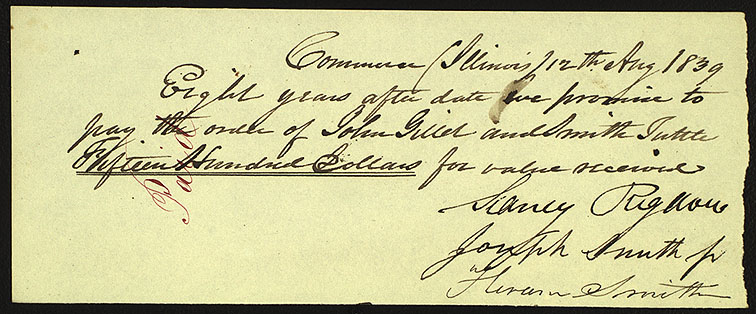 Commerce (Illinois) 12th Aug 1839
Eight years after date we promise to
pay the order of John Gillet and Smith Tuttle
Fifteen Hundred Dollars for value received
Sidney Rigdon
Joseph Smith jr
Hiram Smith
Paid